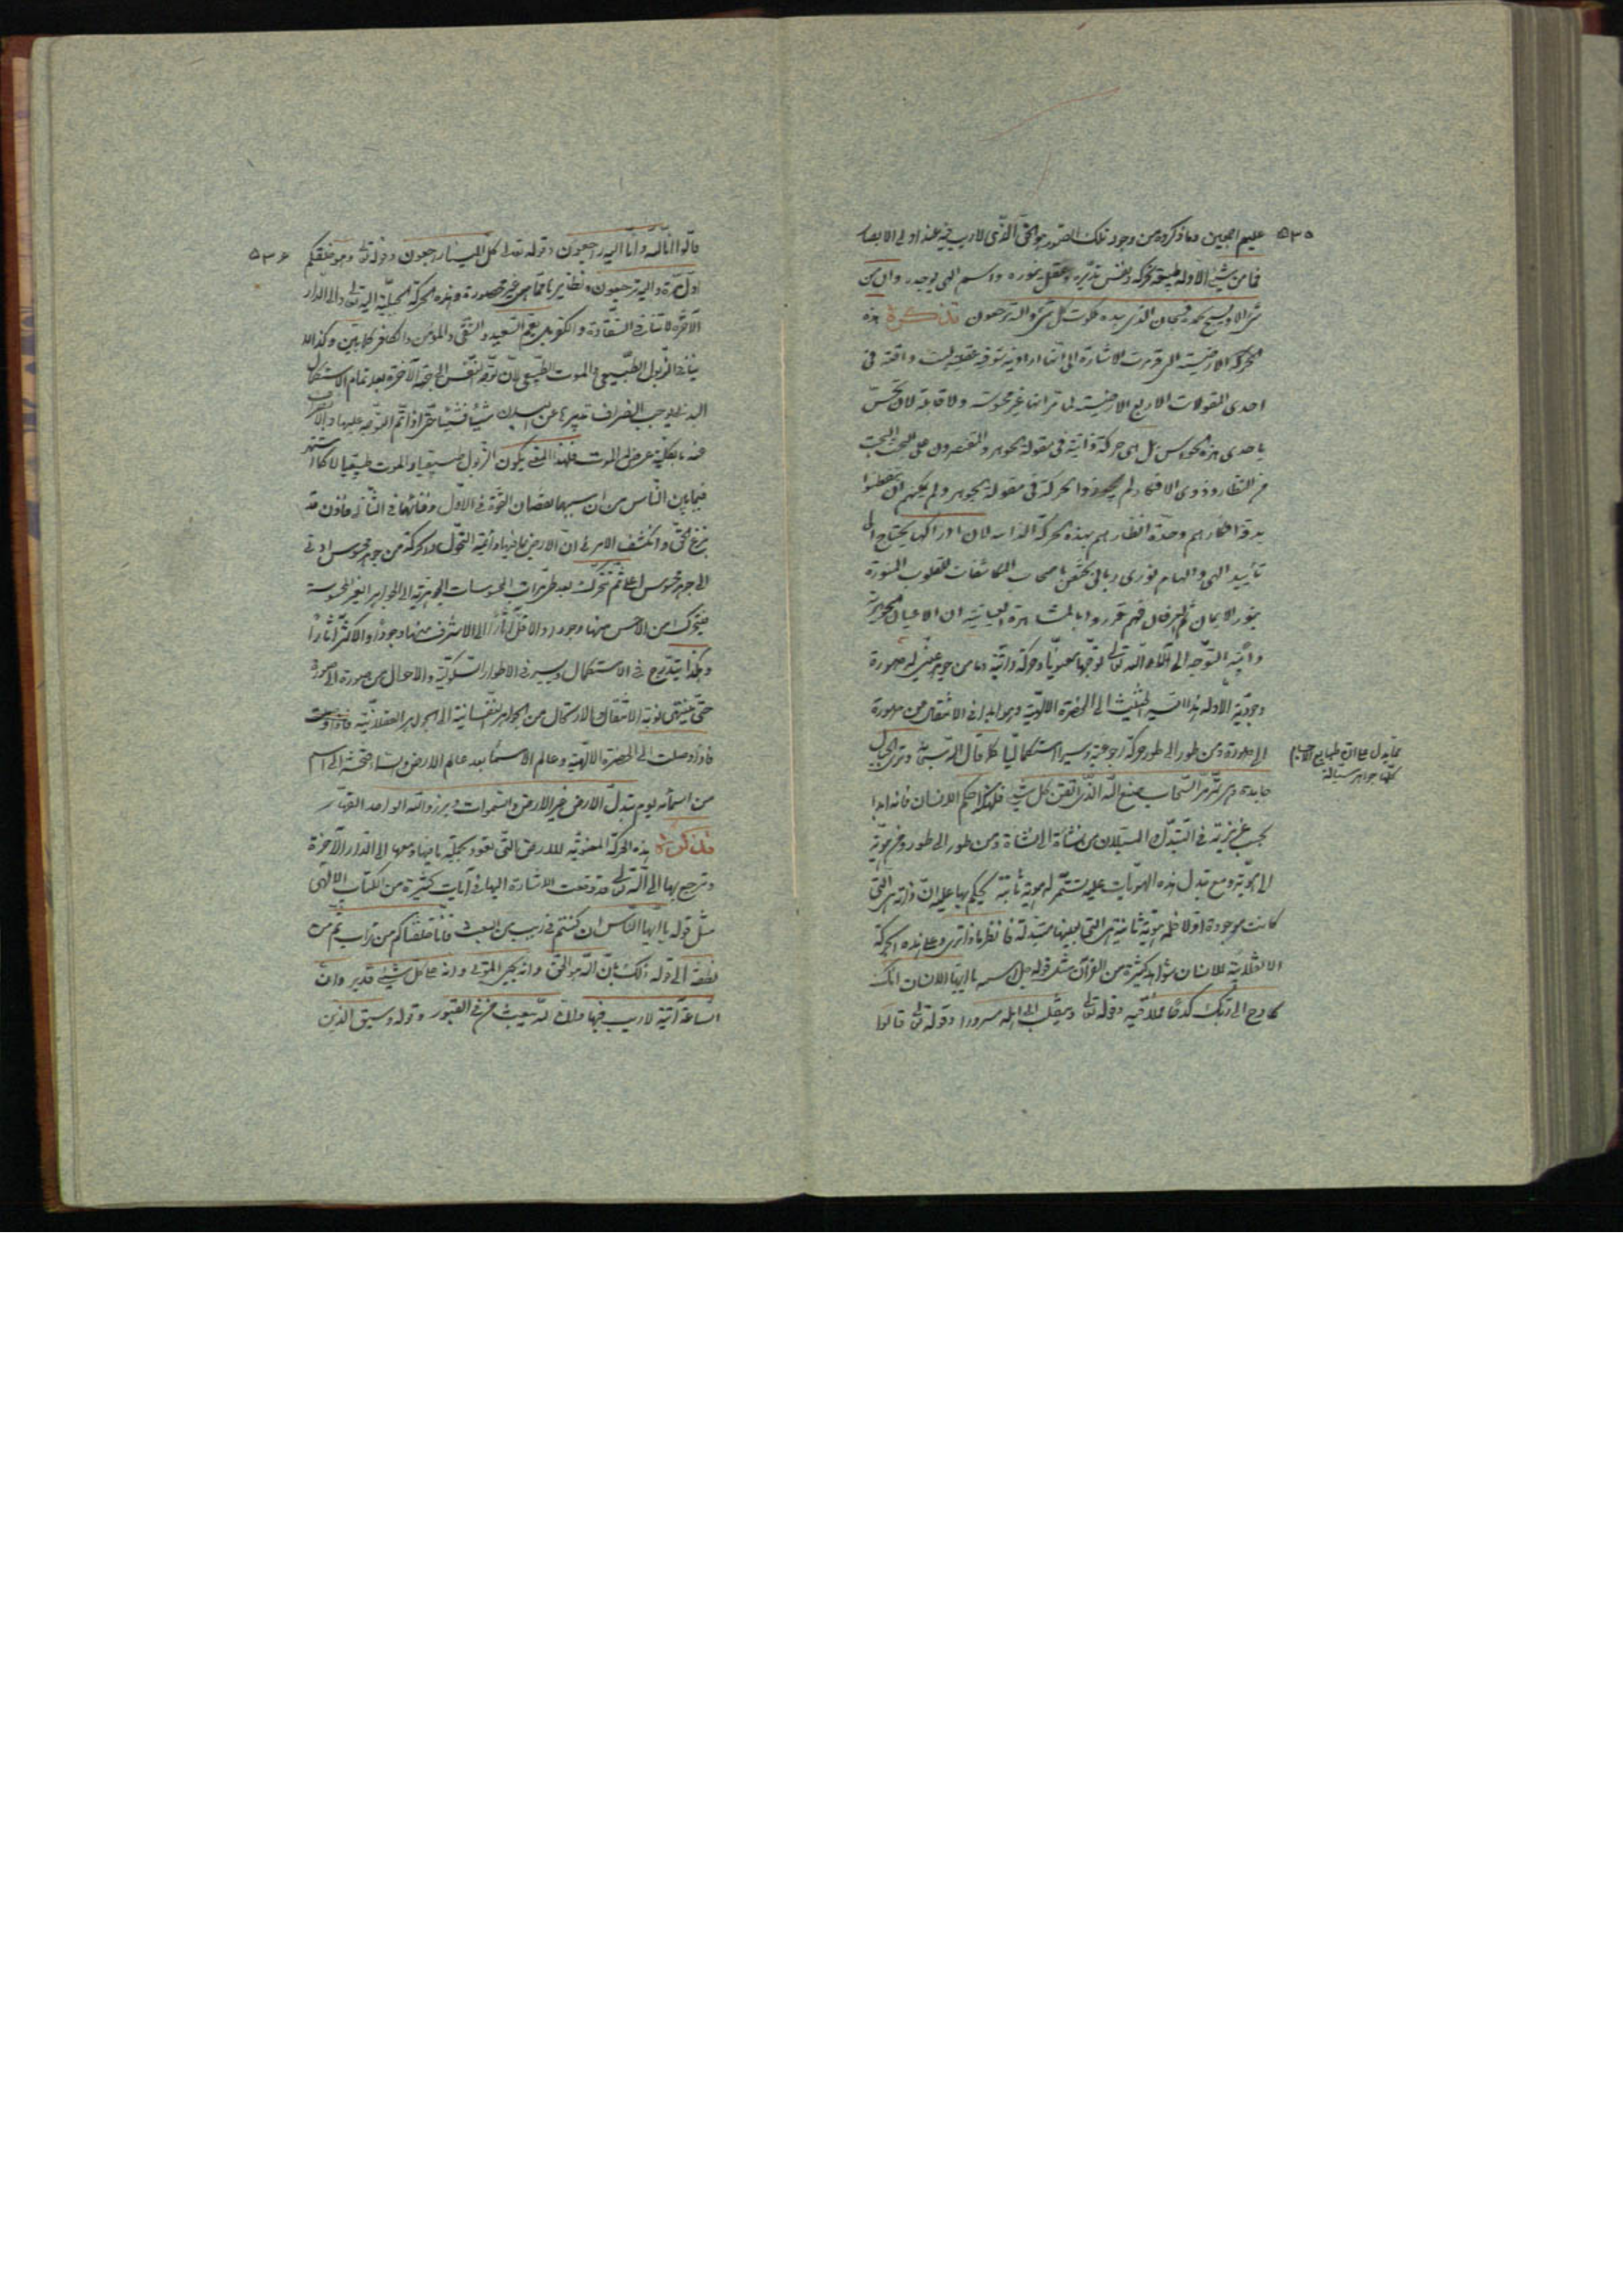 ٥٣٥
عليهم اجمعين وما ذكروه من وجود تلك الصور هو الحق الذى لا ريب فيه عند اولى الابصار
فما من شيئ الا وله طبيعة تحركه ونفس تدبره وعقل ينوره واسم الهى يوجده وان من
شئ الا يسبح بحمده فسبحان الذى بيده ملكوت كل شئ واليه ترجعون تذكرة هذه
الحركة الارضية التى مرت الاشارة الى انها ارادية شوقية عقلية ليست واقعة فى
احدى المقولات الاربع الارضية لما تر انها غير محسوسة ولا قابلة لان تحس
باحدى هذه الحواس بل هى حركة ذاتية فى مقولة الجوهر والمقتصرون على البحث البحت
من النظار وذوى الافكار لم يجوزوا الحركة فى مقولة الجوهر ولم يمكنهم ان يتفطنوا
بدقة افكارهم وحدة انظارهم بهذه الحركة الذاتية لان ادراكها يحتاج الى
تأييد الهى والهام نورى ربانى يختص باصحاب المكاشفات للقلوب المنورة
بنور الايمان ثم العرفان فهم قرروا بالمشاهدة العيانية ان الاعيان الجوهرية
دائمة التوجه الى الله تعالى توجها معنويا وحركة ذاتية وما من جوهر عينى له صورة
وجودية الا وله هذا السير الحثيث الى الحضرة الالهية وهو ابدا فى الانتقال من صورة
الى صورة ومن طور الى طور حركة رجوعية وسيرا استكماليا كما قال الله سبحانه وترى الجبال
مما يدل على ان طبايع الاجسام
كلها جواهر سيالة
جامدة وهى تمر مر السحاب صنع الله الذى اتقن كل شيئ فلهكذا حكم الانسان فانه ابدا
بحسب غريزته فى التبدل من نشأة الى نشأة ومن طور الى طور ومن هوية
الى هوية ومع تبدل هذه الهويات عليه يستمر له هوية ثابتة يحكم بها عليه ان ذاته هى التى
كانت موجودة اولا فله هوية ثانية هى التى بعينها متبدلة فانظر ماذا ترى وعلى هذه الحركة
الانقلابية للانسان شواهد كثيرة من القرآن مثل قوله جل اسمه يا ايها الانسان انك
كادح الى ربك كدحا فملاقيه وقوله تعالى وينقلب الى اهله مسرورا وقوله تعالى قالوا
٥٣٦
قالوا انا لله وانا اليه راجعون وقوله تعالى كل الينا راجعون وقوله تعالى وهو خلقكم
اول مرة واليه ترجعون ونظايرها مما هى غير محصورة وهذه الحركة الجبلية اليه تعالى والى الدار
الآخرة لا تنافى الشقاوة والكفر يعم السعيد والشقى والمؤمن والكافر كلا بين وكذا لا
ينافى الذبول الطبيعى والموت الطبيعى لان توجه النفس الى جهة الآخرة بعد تمام الاستكمال
البدنى يوجب انصراف تدبيرها عن البدن شيئا فشيئا حتى اذا تم التوجه عليها والانصراف
عنه بالكلية عرض الموت فلهذا المعنى يكون الذبول طبيعيا والموت طبيعيا لا كما اشتهر
فيما بين الناس من ان سببهما نقصان القوة فى الاول وفنائها فى الثانى فاذن قد
بزغ الحق وانكشف الامر فى ان الارض بما فيها دائمة التحول والحركة من جوهر محسوس ادنى
الى جوهر محسوس اعلى ثم تتحرك بعد طى مراتب المحسوسات الجوهرية الى الجواهر الغير المحسوسة
فيتحرك من الاخس منها وجودا والاقل آثارا الى الاشرف منها وجودا والاكثر آثارا
وهكذا يتدرج فى الاستكمال ويسير فى الاطوار السلوكية والاحوال من صورة الى صورة
حتى ينتهى نوبة الانتقال والارتحال من الجواهر النفسانية الى الجواهر العقلانية
فاذا وصلت الى الحضرة الالهية وعالم الاسماء بعد عالم الارض والسماء فحشرت الى اسم
من اسمائه يوم تبدل الارض غير الارض والسموات وبرزوا لله الواحد القهار
تذكرة هذه الحركة المعنوية للارض التى تعود بجملة ما فيها ومعها الى الدار الآخرة
وترجع بها الى الله تعالى قد وقعت الاشارة اليها فى آيات كثيرة من الكتاب الالهى
مثل قوله يا ايها الناس ان كنتم فى ريب من البعث فانا خلقناكم من تراب ثم من
نطفة الى قوله ذلك بان الله هو الحق وانه يحيى الموتى وانه على كل شيئ قدير وان
الساعة آتية لا ريب فيها وان الله يبعث من فى القبور وقوله وسيق الذين